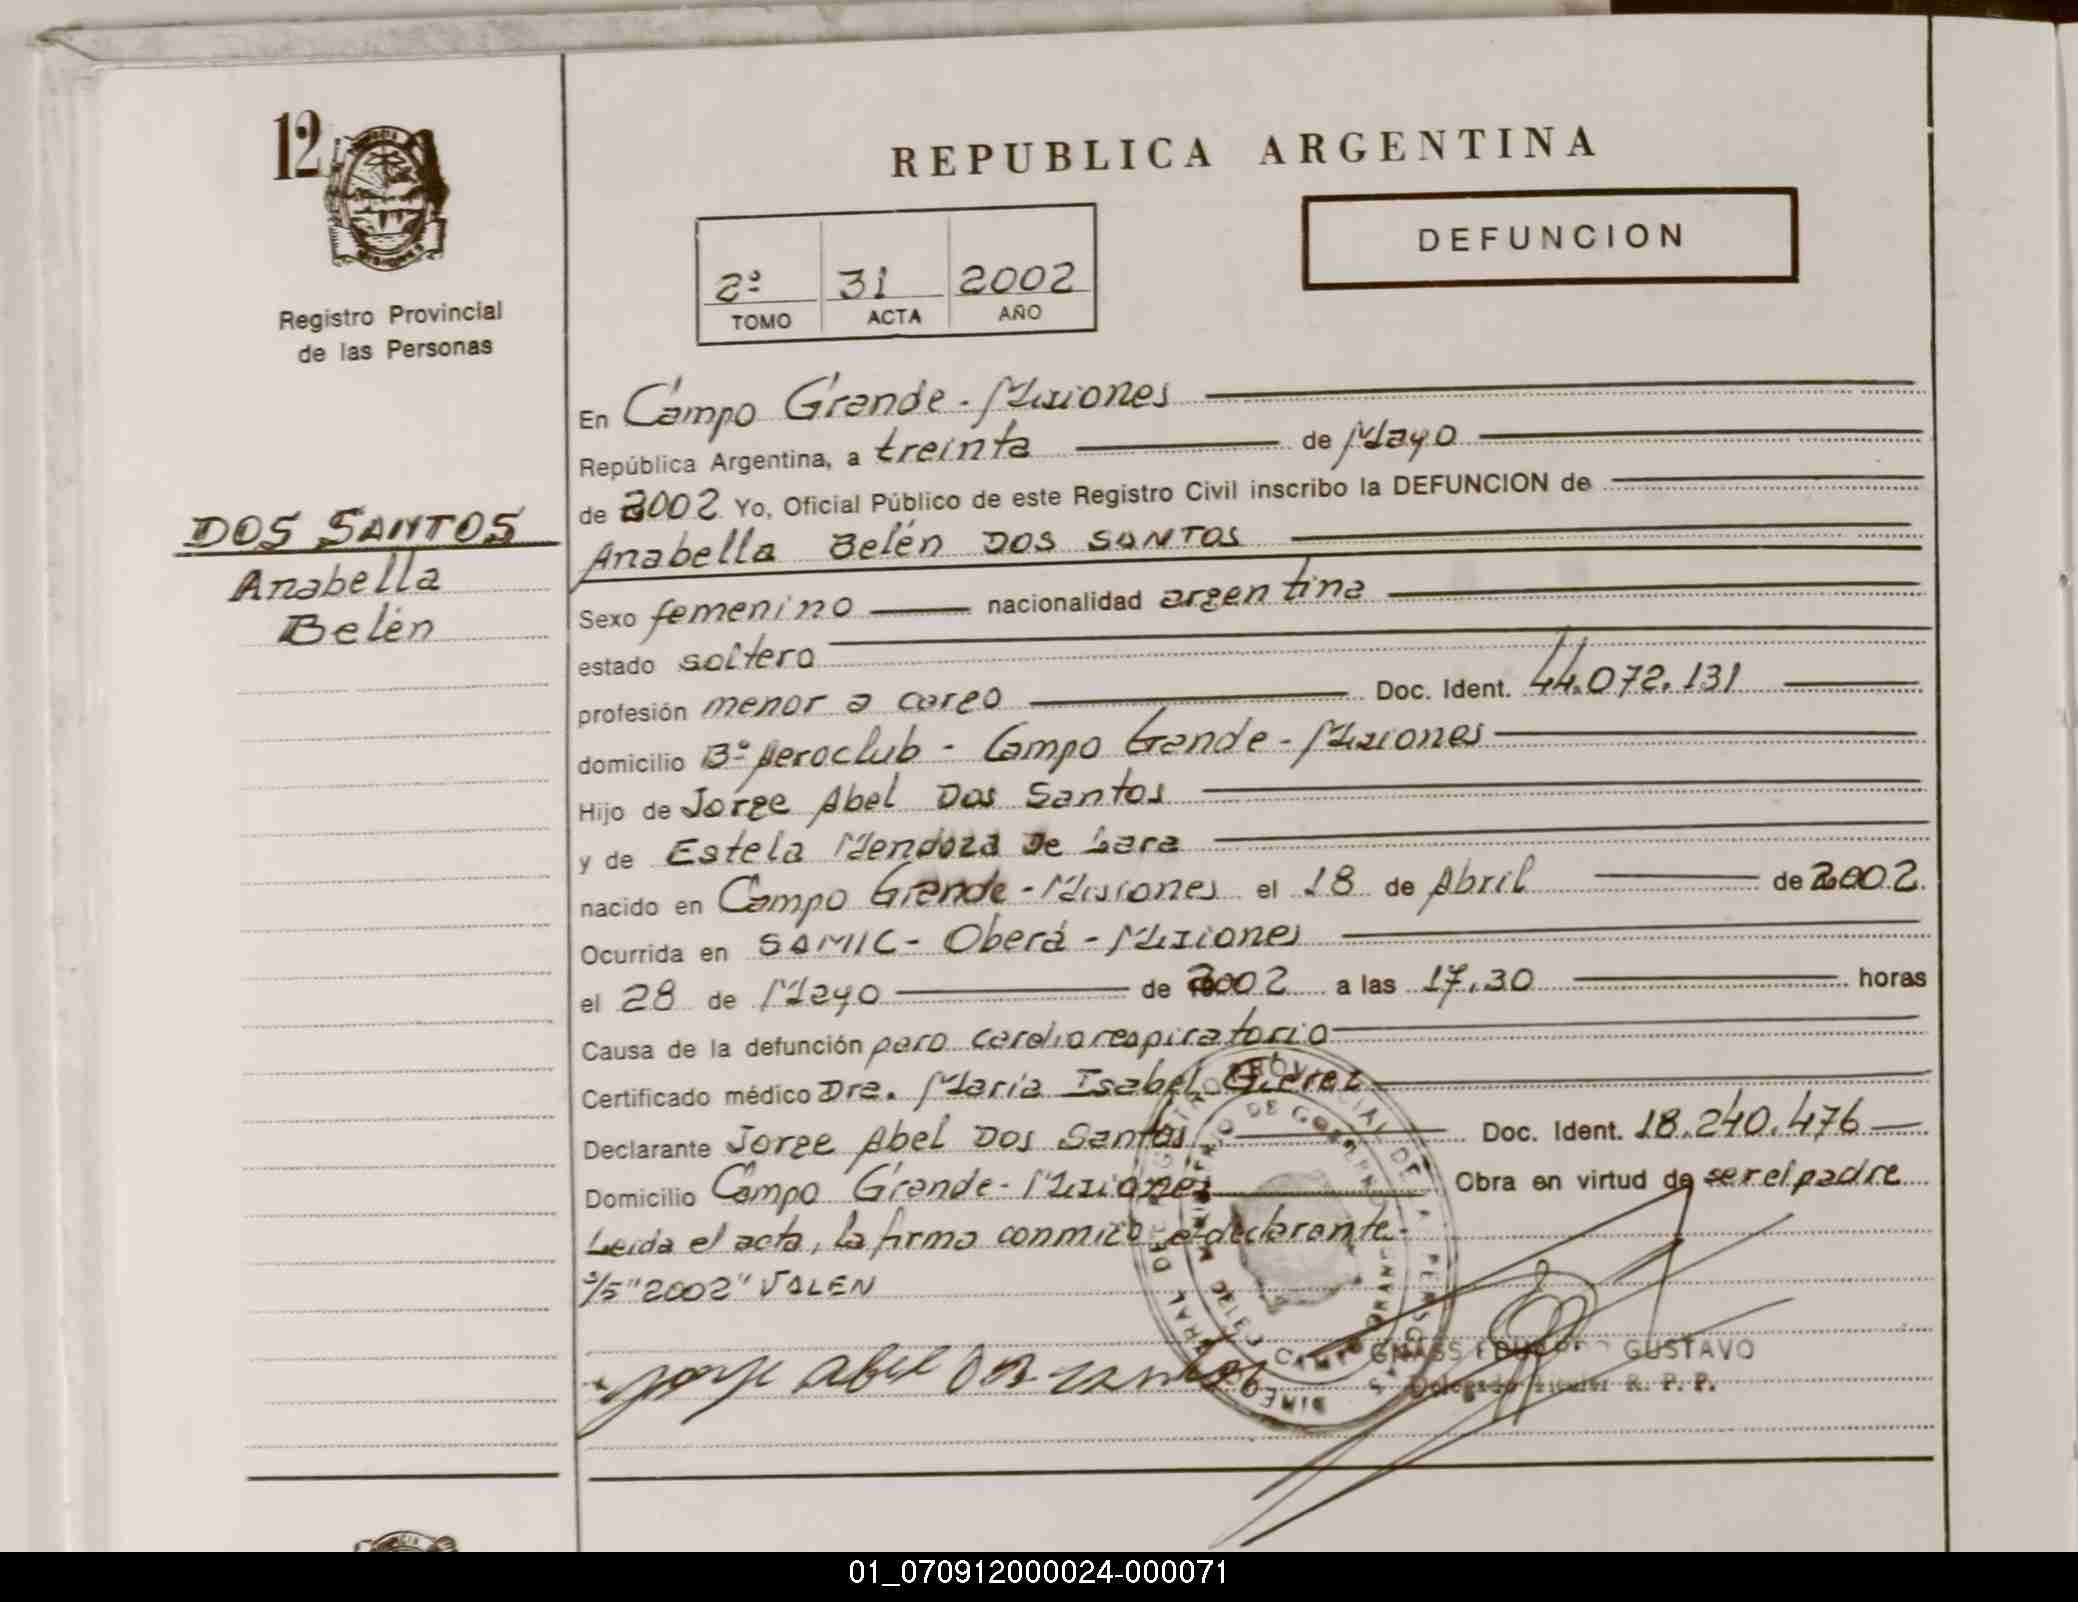 12
Registro Provincial
de las Personas
REPUBLICA ARGENTINA
DEFUNCION
2º 31 2002
TOMO ACTA AÑO
DOS SANTOS
Anabella
Belén
En Campo Grande - Misiones
República Argentina, a treinta de Mayo
de 2002 Yo, Oficial Público de este Registro Civil inscribo la DEFUNCION de
Anabella Belén DOS SANTOS
Sexo femenino nacionalidad argentina
estado soltero
profesión menor a cargo Doc. Ident. 44.072.131
domicilio Bº Aeroclub - Campo Grande - Misiones
Hijo de Jorge Abel Dos Santos
y de Estela Mendoza De Lara
nacido en Campo Grande - Misiones el 18 de Abril de 2002.
Ocurrida en SAMIC - Oberá - Misiones
el 28 de Mayo de 2002 a las 17,30 horas
Causa de la defunción paro cardiorespiratorio
Certificado médico Dra. María Isabel
Declarante Jorge Abel Dos Santos Doc. Ident. 18.240.476
Domicilio Campo Grande - Misiones Obra en virtud de ser el padre
Leída el acta, la firma conmigo el declarante.
S/S "2002" VALEN
Jorge Abel Dos Santos
GUSTAVO
R. P. P.
01_070912000024-000071